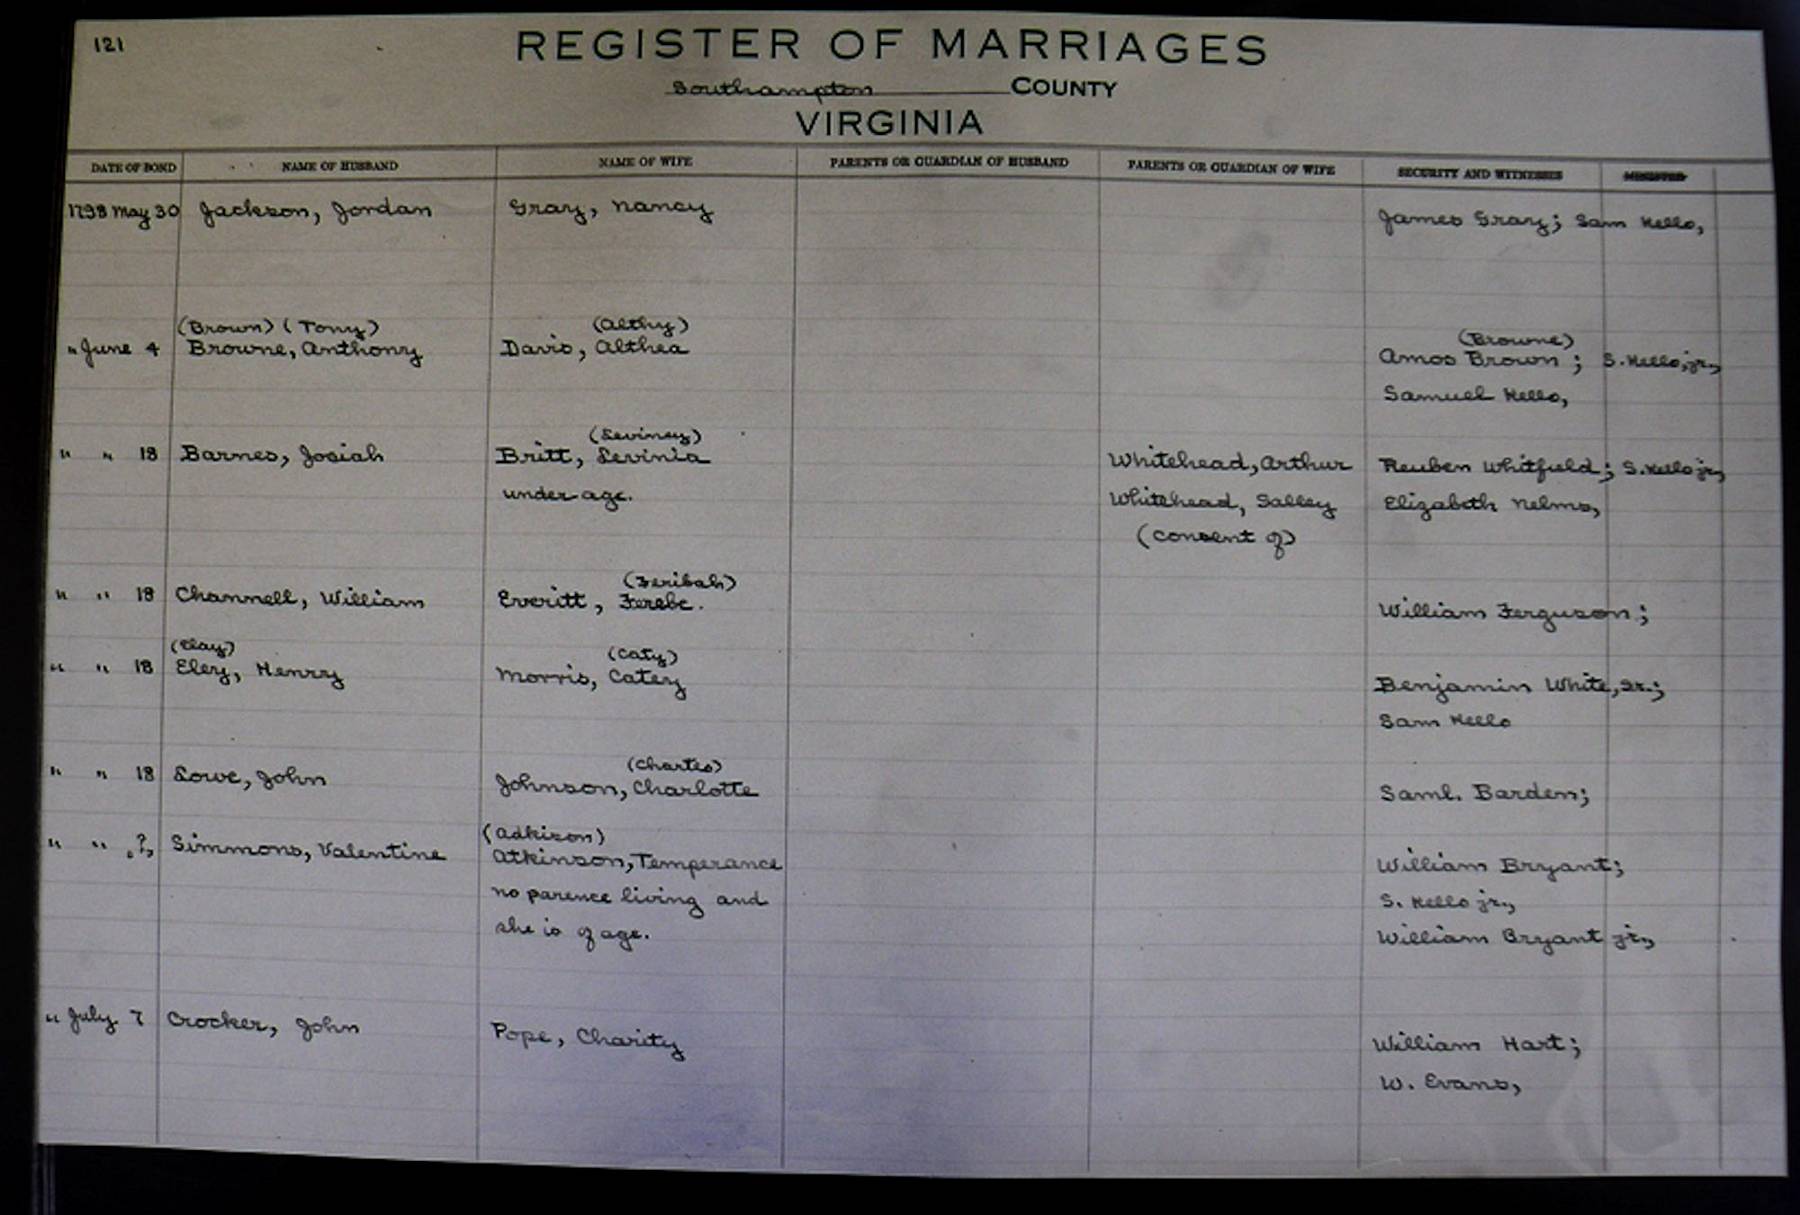 121
REGISTER OF MARRIAGES
Southampton COUNTY
VIRGINIA
DATE OF BOND NAME OF HUSBAND NAME OF WIFE PARENTS OR GUARDIAN OF HUSBAND PARENTS OR GUARDIAN OF WIFE SECURITY AND WITNESSES MINISTER
1798 May 30 Jackson, Jordan Gray, Nancy James Gray; Sam Kello,
(Brown) (Tony) (Althy) (Browne)
" June 4 Browne, Anthony Davis, Althea Amos Brown; S. Kello, jr.,
Samuel Kello,
(Leviney)
" " 18 Barnes, Josiah Britt, Levinia Whitehead, Arthur Reuben Whitfield; S. Kello jr.,
under age. Whitehead, Salley Elizabeth Nelms,
(consent of)
(Feribah)
" " 18 Channell, William Everitt, Ferebe. William Ferguson;
(Elay) (Caty)
" " 18 Eley, Henry Morris, Catey Benjamin White, Sr.;
Sam Kello
(Chartes)
" " 18 Lowe, John Johnson, Charlotte Saml. Barden;
(Adkison)
" " ,?, Simmons, Valentine Atkinson, Temperance William Bryant;
no parence living and S. Kello jr.,
she is of age. William Bryant jr.,
" July 7 Crocker, John Pope, Charity William Hart;
W. Evans,